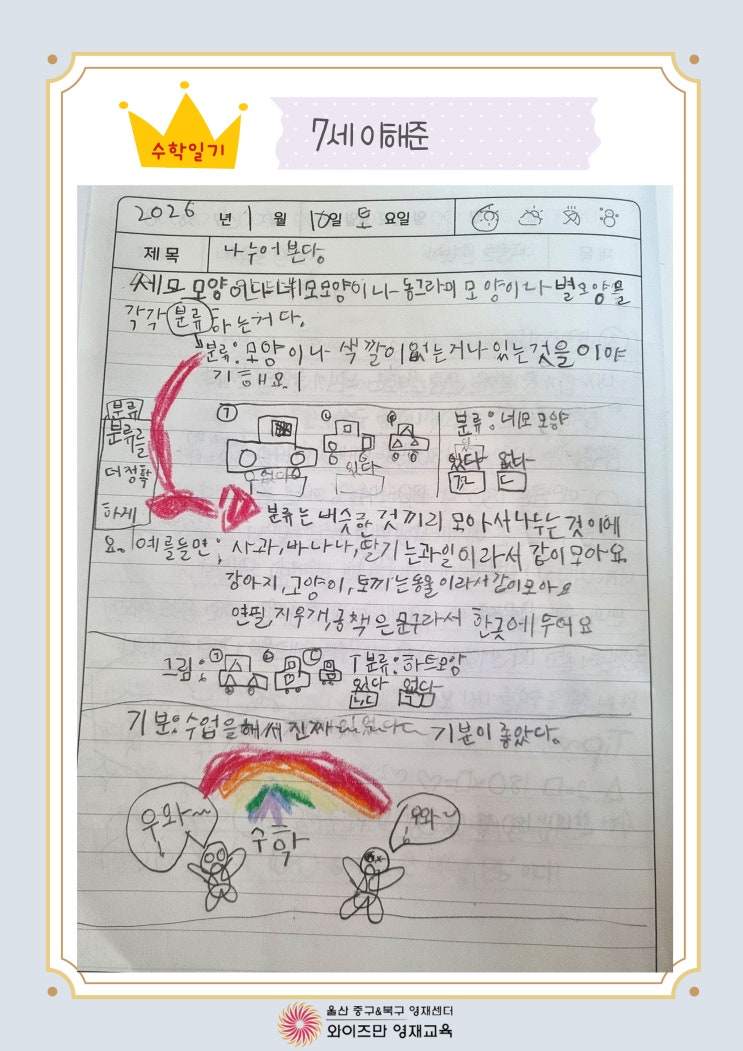 수학일기
7세 이해준
2026 년 1 월 10일 토 요일
제목 나누어 본다.
세모 모양이나 네모모양이나 동그라미 모양이나 별모양을
각각 분류하는거다.
분류: 모양이나 색깔이 없는거나 있는것을 이야
기해요!
분류
분류를
더정확
하게
㉠ ㉡ ㉢ 분류: 네모모양
없다 있다
있다 없다
분류는 비슷한 것끼리 모아서 나누는 것이에
요. 예를들면; 사과, 바나나, 딸기는 과일이라서 같이모아요
강아지, 고양이, 토끼는 동물이라서 같이모아요
연필, 지우개, 공책은 문구라서 한곳에 두어요
그림: ㉠ ㉡ ㉢ 분류: 하트모양
있다 없다
기분: 수업을해서 진짜 기분이 좋았다.
우와~!
수학
우와~!
울산 중구&북구 영재센터
와이즈만 영재교육